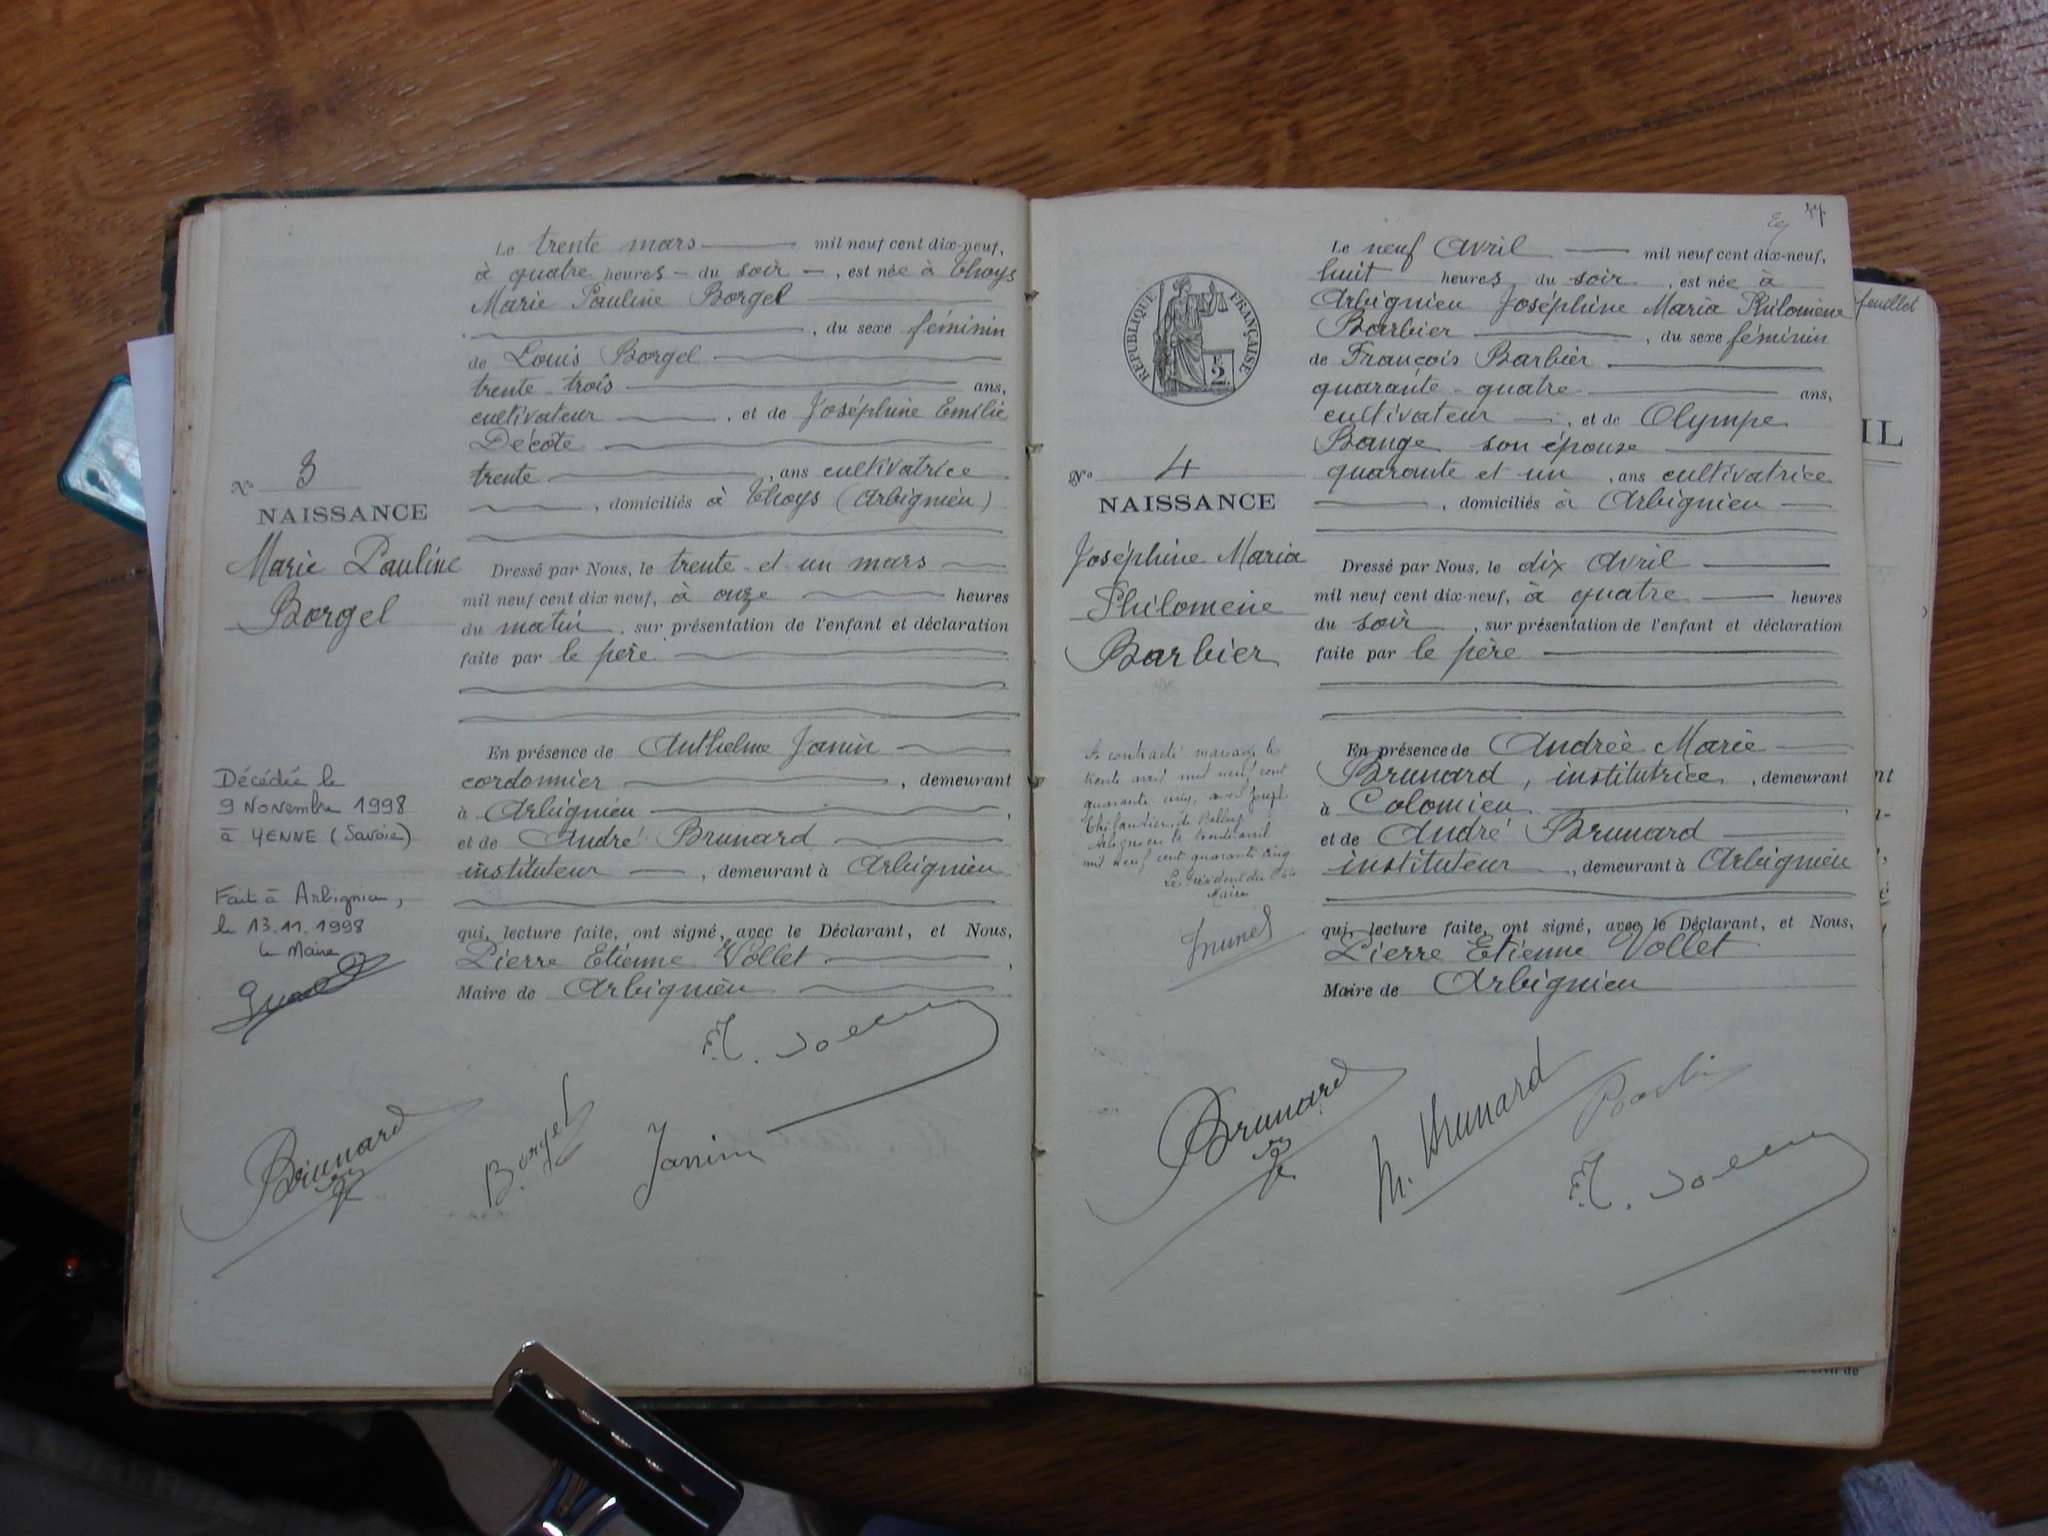 Le trente mars mil neuf cent dix-neuf,
à quatre heures du soir, est née à Thoys
Marie Pauline Borgel
, du sexe féminin
de Louis Borgel
trente trois ans,
cultivateur, et de Joséphine Emilie
Décôte
trente, ans cultivatrice
, domiciliés à Thoys (Arbignieu)
No 3
NAISSANCE
Marie Pauline
Borgel
Dressé par Nous, le trente et un mars
mil neuf cent dix neuf, à onze heures
du matin, sur présentation de l'enfant et déclaration
faite par le père
En présence de Anthelme Janin
cordonnier, demeurant
à Arbignieu,
et de André Brunard
instituteur, demeurant à Arbignieu
qui, lecture faite, ont signé, avec le Déclarant, et Nous,
Pierre Etienne Vollet,
Maire de Arbignieu
Décédée le
9 Novembre 1998
à YENNE (Savoie)
Fait à Arbignieu,
le 13.11.1998
Le Maire
Brunard
B. orgel
Janin
47
Le neuf Avril mil neuf cent dix-neuf,
huit heures du soir, est née à
Arbignieu Joséphine Maria Philomène
Barbier, du sexe féminin
de François Barbier
quarante-quatre ans,
cultivateur, et de Olympe
Bange son épouse
quarante et un, ans cultivatrice
, domiciliés à Arbignieu
RÉPUBLIQUE FRANÇAISE
No 4
NAISSANCE
Joséphine Maria
Philomène
Barbier
Dressé par Nous, le dix Avril
mil neuf cent dix-neuf, à quatre heures
du soir, sur présentation de l'enfant et déclaration
faite par le père
En présence de Andrée Marie
Brunard, institutrice, demeurant
à Colomieu
et de André Brunard
instituteur, demeurant à Arbignieu
qui, lecture faite, ont signé, avec le Déclarant, et Nous,
Pierre Etienne Vollet
Maire de Arbignieu
A contracté mariage le
trente avril mil neuf cent
quarante cinq, avec Joseph
de Belley
Arbignieu le trente avril
mil neuf cent quarante cinq
Le Président
Maire
Brunard
M. Brunard
feuillet
IL